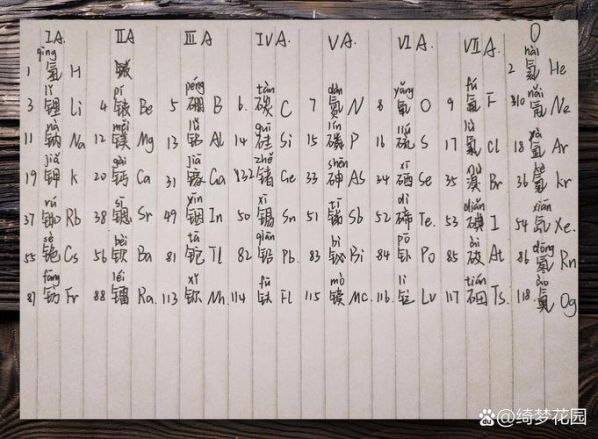 IA. IIA IIIA IVA. VA. VIA. VIIA O
qīng nài
1 氢 H 2 氦 He
lǐ pí péng tàn dàn yǎng fú nǎi
3 锂 Li 4 铍 Be 5 硼 B 6. 碳 C 7 氮 N 8 氧 O 9 氟 F 10 氖 Ne
nà měi lǚ guī lín liú lǜ yà
11 钠 Na 12 镁 Mg 13 铝 Al 14 硅 Si 15 磷 P 16 硫 S 17 氯 Cl 18 氩 Ar
jiǎ gài jiā zhě shēn xī
19 钾 K 20 钙 Ca 31 镓 Ga 32 锗 Ge 33 砷 AS 34 硒 Se 35 溴 Br 36 氪 Kr
rú sī yīn xī tī dì diǎn
37 铷 Rb 38 锶 Sr 49 铟 In 50 锡 Sn 51 锑 Sb 52 碲 Te. 53 碘 I 54 氙 Xe.
sè bèi tā qiān bì pō dōng
55 铯 Cs 56 钡 Ba 81 铊 Tl 82 铅 Pb. 83 铋 Bi 84 钋 Po 85 At 86 氡 Rn
fāng léi xǐ fū mò lì tián ào
87 钫 Fr 88 镭 Ra. 113 Nh. 114 Fl 115 镆 Mc. 116 Lv 117 Ts. 118. Og
百家号@绮梦花园